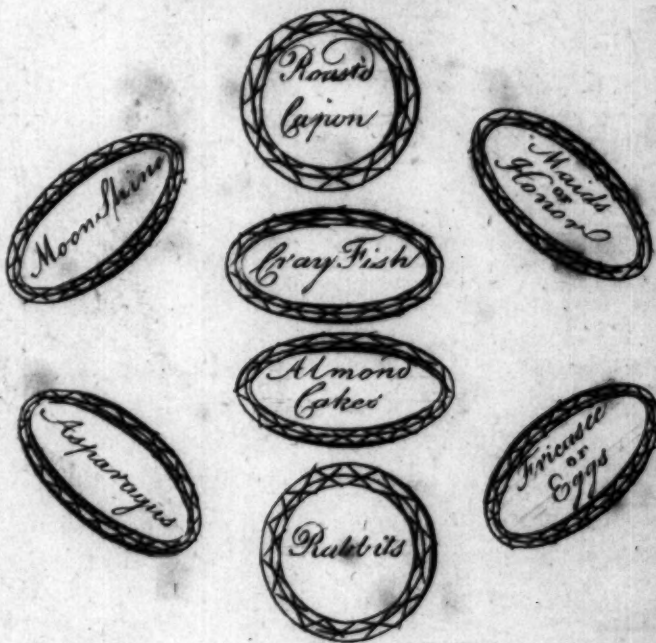 Roast'd
Capon
Moon Shine
Maids
or
Honor
Cray Fish
Almond
Cakes
Asparagus
Fricasee
or
Eggs
Rabbits